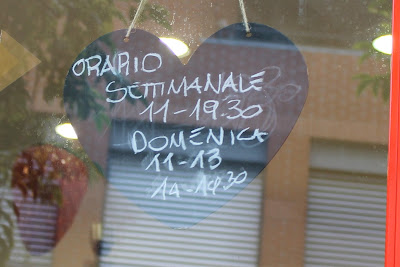 ORARIO
SETTIMANALE
11-19.30
DOMENICA
11-13
14-19.30